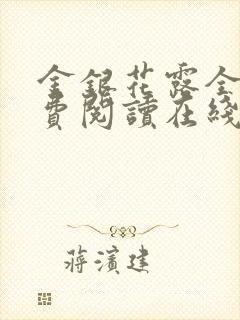 金銀花露全
費閱讀在綫
蔣濱建